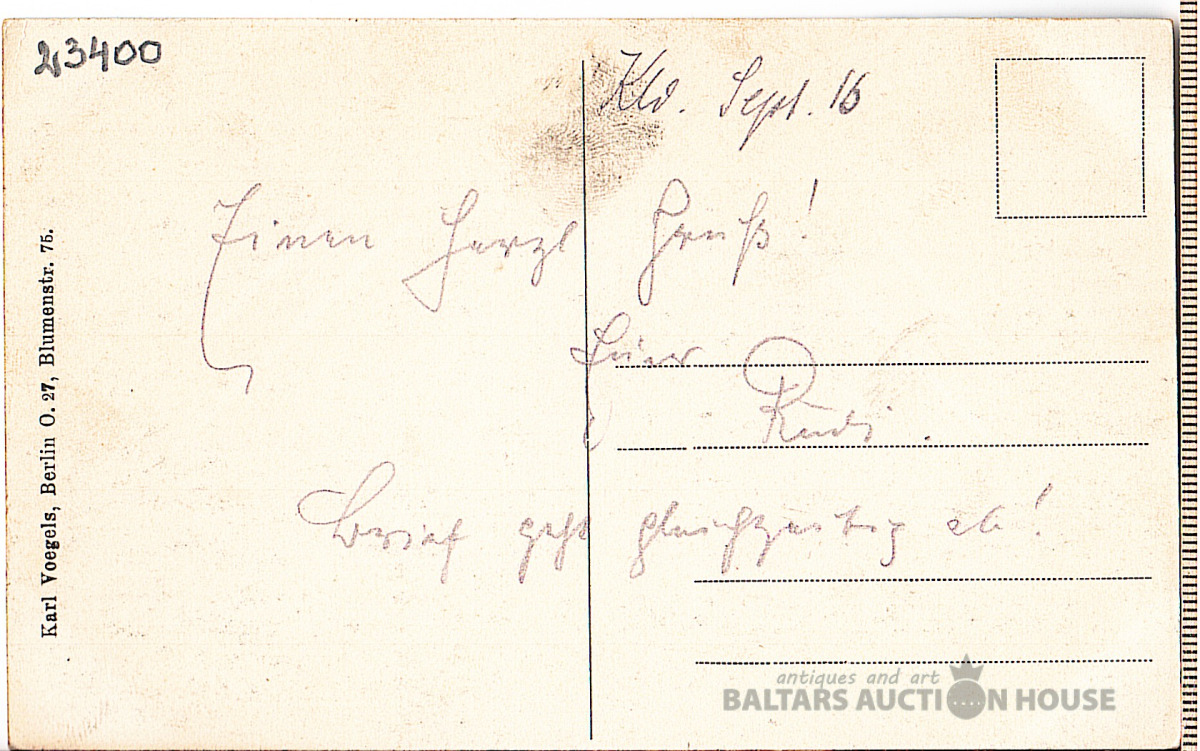 23400
Kld. Sept. 16
Einen herzl Gruß!
Euer
Rudi.
Brief geht gleichzeitig ab!
Karl Voegels, Berlin O. 27, Blumenstr. 75.
antiques and art
BALTARS AUCTION HOUSE